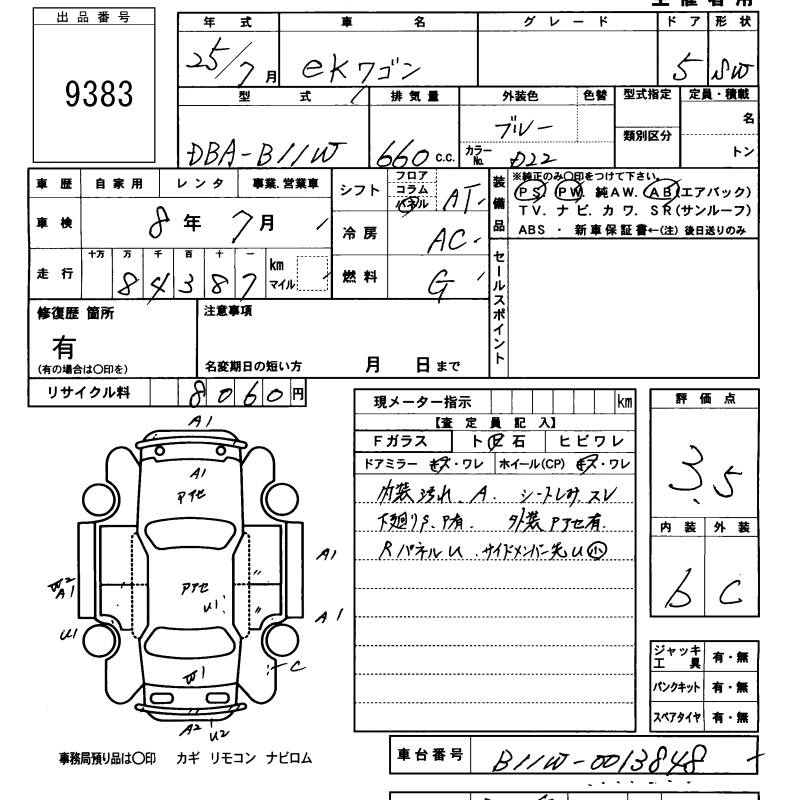 出品番号
9383
年式 車名 グレード ドア 形状
25/7月 ekワゴン 5 SW
型式 排気量 外装色 色替 型式指定 定員・積載
DBA-B11W 660 c.c. ブルー 類別区分 名
カラーNo. D22 トン
車歴 自家用 レンタ 事業.営業車
車検 8年 7月
走行 十万 万 千 百 十 一 km マイル
8 4 3 8 7
シフト フロア コラム パネル AT
冷房 AC
燃料 G
装備品
※純正のみ〇印をつけて下さい。
PS PW 純AW. AB(エアバック)
TV. ナビ. カワ. SR(サンルーフ)
ABS ・ 新車保証書←(注) 後日送りのみ
セールスポイント
修復歴 箇所
有
(有の場合は〇印を)
注意事項
名変期日の短い方 月 日まで
リサイクル料 8060円
現メーター指示 km
【査定員記入】
Fガラス ト石 ヒビワレ
ドアミラー キズ・ワレ ホイール(CP) キズ・ワレ
内装汚れ A. シートしみ スレ
下廻りS、P有. 外装アセ有.
RパネルU サイドメンバー先U小
評価点
3.5
内装 外装
b C
A1
A1
アセ
W2
A1
U1
アセ
U1
A1
A1
W1
C
A2
U2
ジャッキ工具 有・無
パンクキット 有・無
スペアタイヤ 有・無
事務局預り品は〇印 カギ リモコン ナビロム
車台番号 B11W-0013848